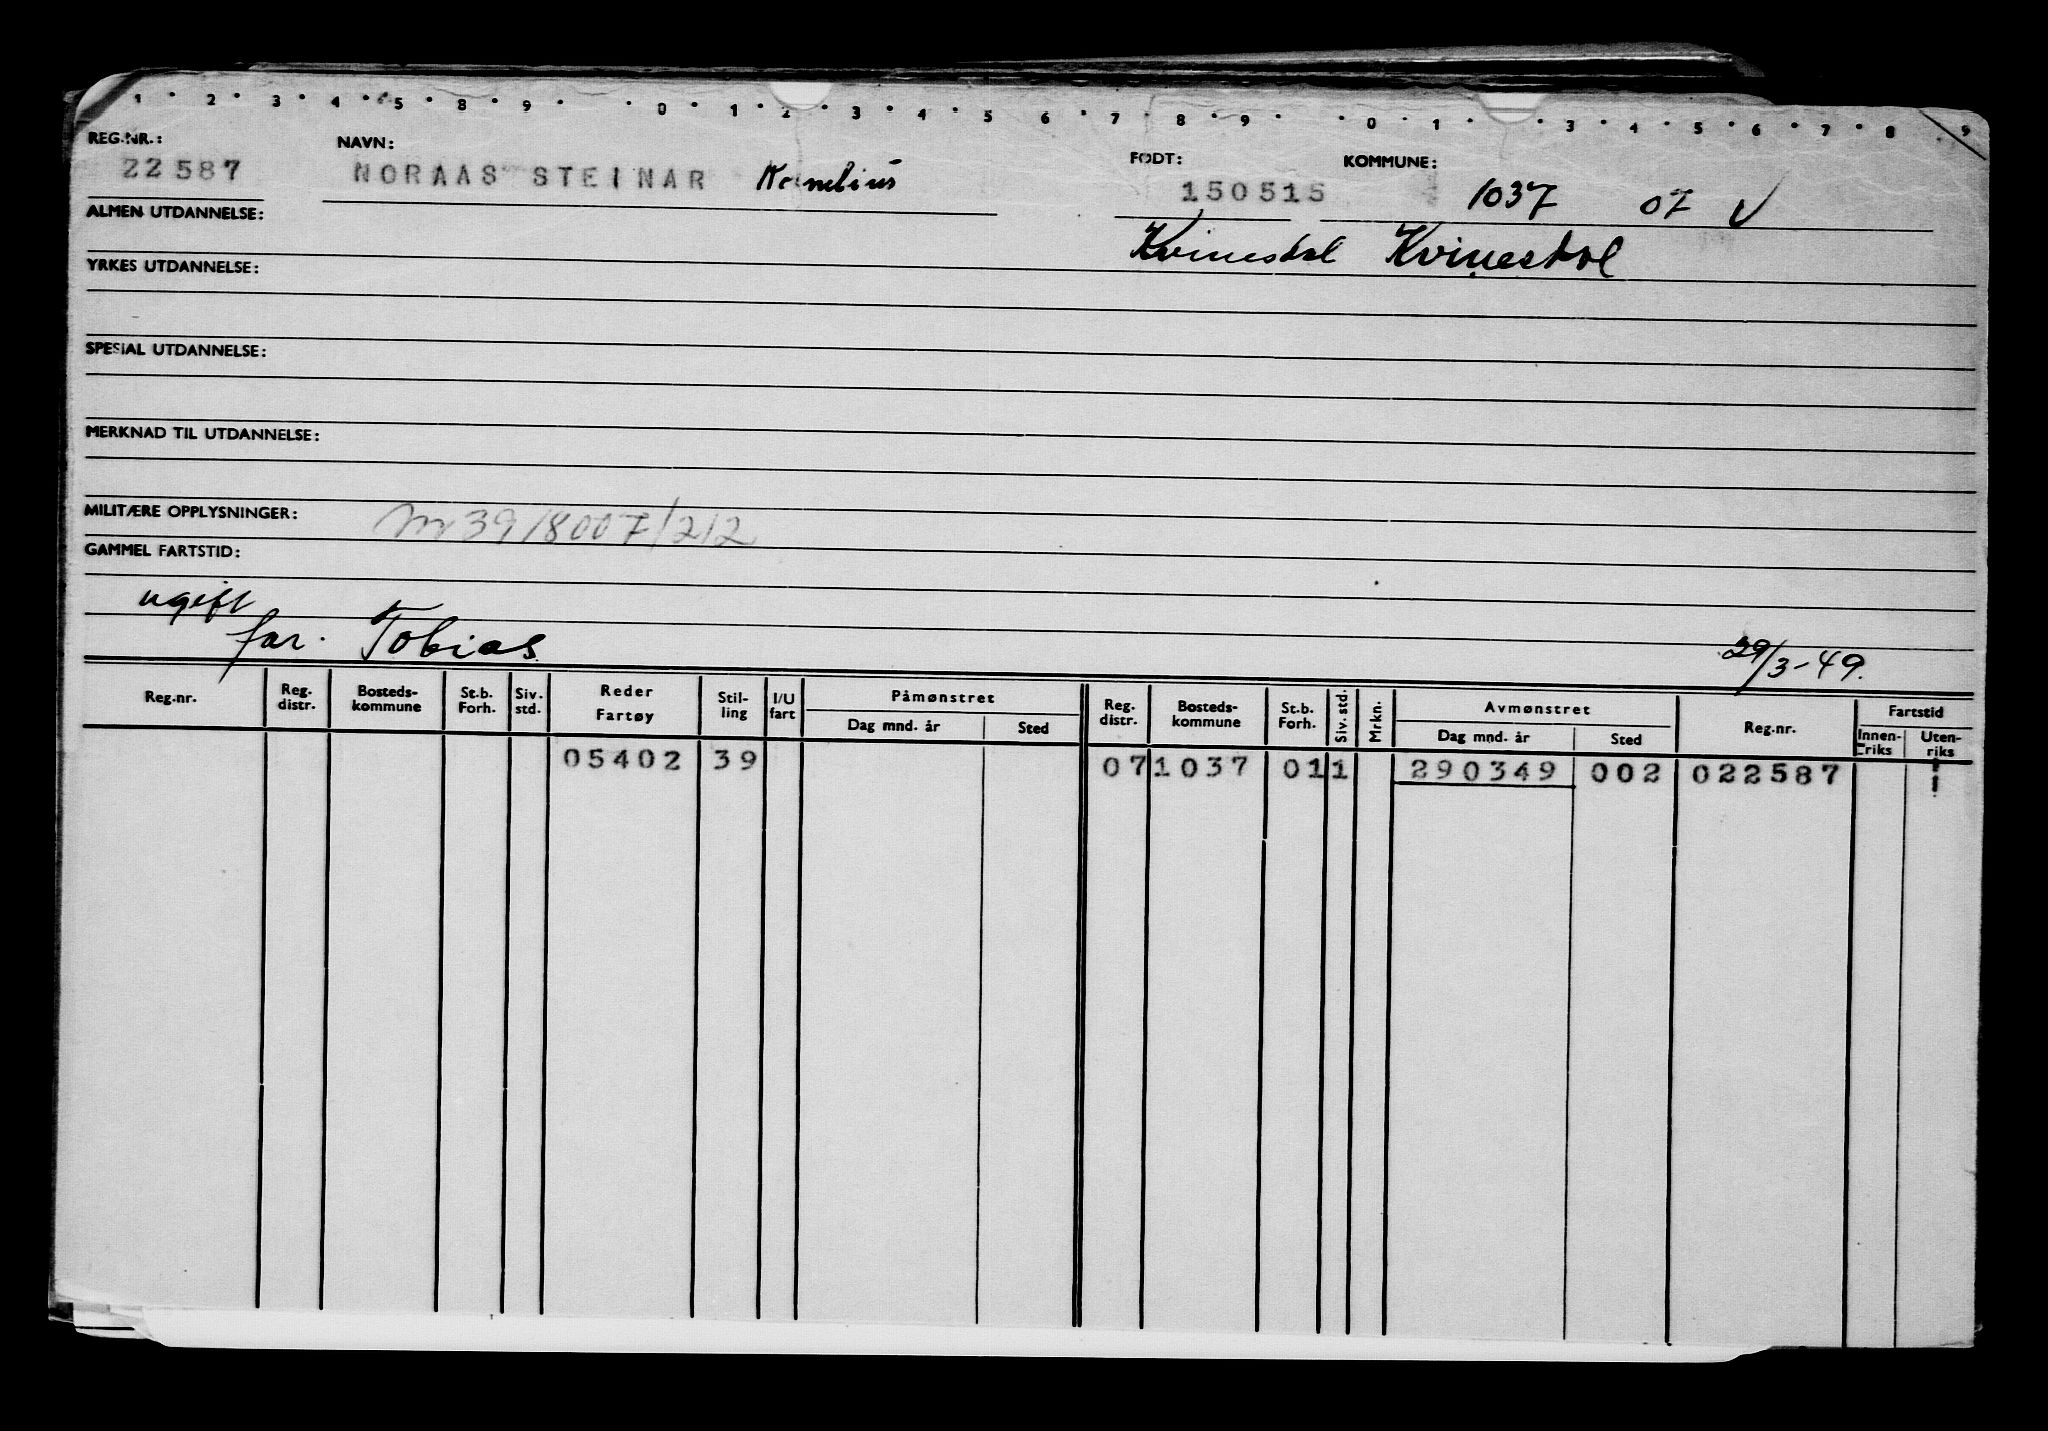 1 · 2 · 3 · 4 · 5 · 8 · 9 · · 0 · 1 · 2 · 3 · 4 · 5 · 6 · 7 · 8 · 9 · · 0 · 1 · · 3 · 4 · 5 · 6 · 7 · 8 · 9
REG.NR.: NAVN: FØDT: KOMMUNE:
22587 NORAAS STEINAR Kornelius 150515 1037 07 V
ALMEN UTDANNELSE: Kvinesdal Kvinesdal
YRKES UTDANNELSE:
SPESIAL UTDANNELSE:
MERKNAD TIL UTDANNELSE:
MILITÆRE OPPLYSNINGER: m 39/8007/212
GAMMEL FARTSTID:
ugift
far. Tobias 29/3-49.
Reg.nr. Reg. distr. Bosteds-kommune St.b. Forh. Siv. std. Reder Fartøy Stil-ling I/U fart Påmønstret Dag mnd. år Sted Reg. distr. Bosteds-kommune St.b. Forh. Siv. std. Mrkn. Avmønstret Dag mnd. år Sted Reg.nr. Fartstid Innen-riks Uten-riks
05402 39 07 1037 01 1 290349 002 022587